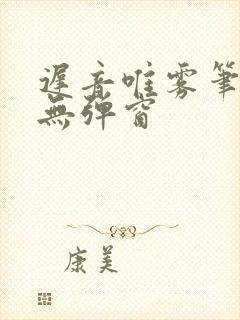 遲音唯雾筆
無弹窗
康美